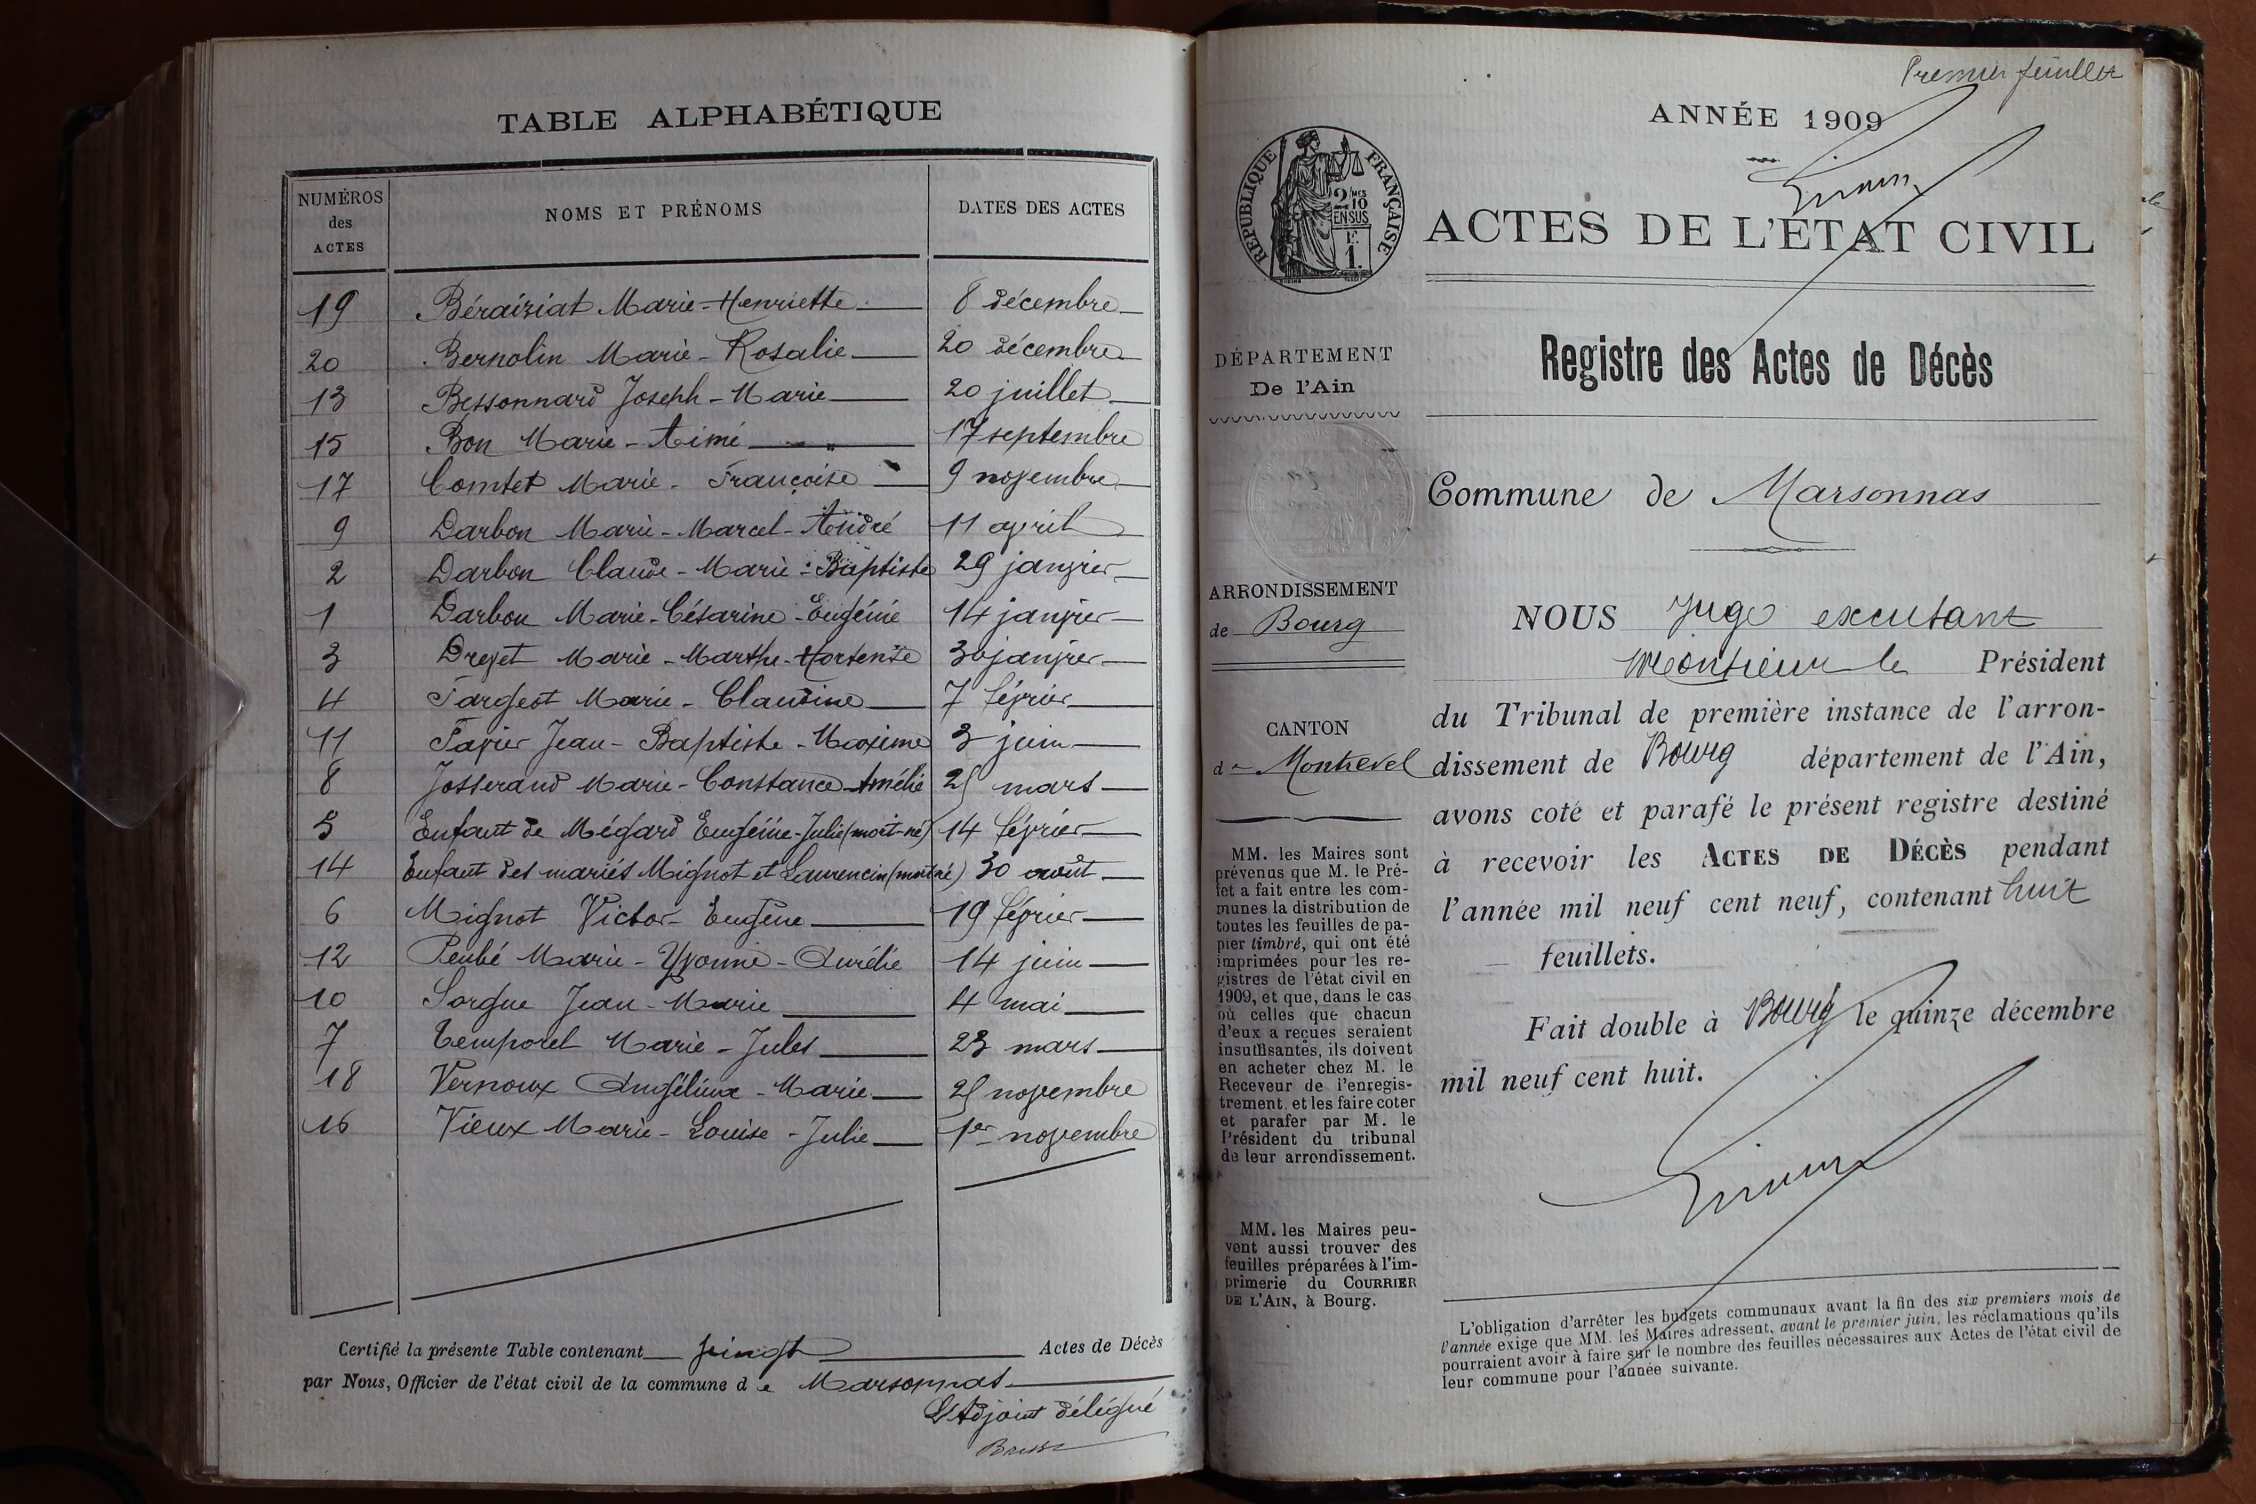 TABLE ALPHABÉTIQUE
NUMÉROS
des
ACTES
NOMS ET PRÉNOMS
DATES DES ACTES
19 Béraiziat Marie-Henriette 8 décembre
20 Bernolin Marie-Rosalie 20 décembre
13 Bessonnard Joseph-Marie 20 juillet
15 Bon Marie-Aimé 17 septembre
17 Comtet Marie-Françoise 9 novembre
9 Darbon Marie-Marcel-André 11 avril
2 Darbon Claude-Marie-Baptiste 29 janvier
1 Darbon Marie-Césarine-Eugénie 14 janvier
3 Drevet Marie-Marthe-Hortense 30 janvier
4 Fargeot Marie-Claudine 7 février
11 Favier Jean-Baptiste-Maxime 3 juin
8 Josserand Marie-Constance-Amélie 25 mars
5 Enfant de Mégard Eugénie-Julie (mort-né) 14 février
14 Enfant des mariés Mignot et Laurencin (mort né) 30 août
6 Mignot Victor-Eugène 19 février
12 Peubé Marie-Yvonne-Aurélie 14 juin
10 Sorgue Jean-Marie 4 mai
7 Temporel Marie-Jules 23 mars
18 Vernoux Angéline-Marie 25 novembre
16 Vieux Marie-Louise-Julie 1er novembre
Certifié la présente Table contenant vingt Actes de Décès
par Nous, Officier de l'état civil de la commune de Marsonnas
L'Adjoint délégué
Premier feuillet
ANNÉE 1909
RÉPUBLIQUE FRANÇAISE
2/10 MES
EN SUS
1.
ACTES DE L'ÉTAT CIVIL
Registre des Actes de Décès
DÉPARTEMENT
De l'Ain
Commune de Marsonnas
ARRONDISSEMENT
de Bourg
CANTON
de Montrevel
MM. les Maires sont
prévenus que M. le Pré-
fet a fait entre les com-
munes la distribution de
toutes les feuilles de pa-
pier timbré, qui ont été
imprimées pour les re-
gistres de l'état civil en
1909, et que, dans le cas
où celles que chacun
d'eux a reçues seraient
insuffisantes, ils doivent
en acheter chez M. le
Receveur de l'enregis-
trement, et les faire coter
et parafer par M. le
Président du tribunal
de leur arrondissement.
MM. les Maires peu-
vent aussi trouver des
feuilles préparées à l'im-
primerie du COURRIER
DE L'AIN, à Bourg.
NOUS Juge excusant
Monsieur le Président
du Tribunal de première instance de l'arron-
dissement de Bourg département de l'Ain,
avons coté et parafé le présent registre destiné
à recevoir les ACTES DE DÉCÈS pendant
l'année mil neuf cent neuf, contenant huit
feuillets.
Fait double à Bourg le quinze décembre
mil neuf cent huit.
L'obligation d'arrêter les budgets communaux avant la fin des six premiers mois de
l'année exige que MM. les Maires adressent, avant le premier juin, les réclamations qu'ils
pourraient avoir à faire sur le nombre des feuilles nécessaires aux Actes de l'état civil de
leur commune pour l'année suivante.